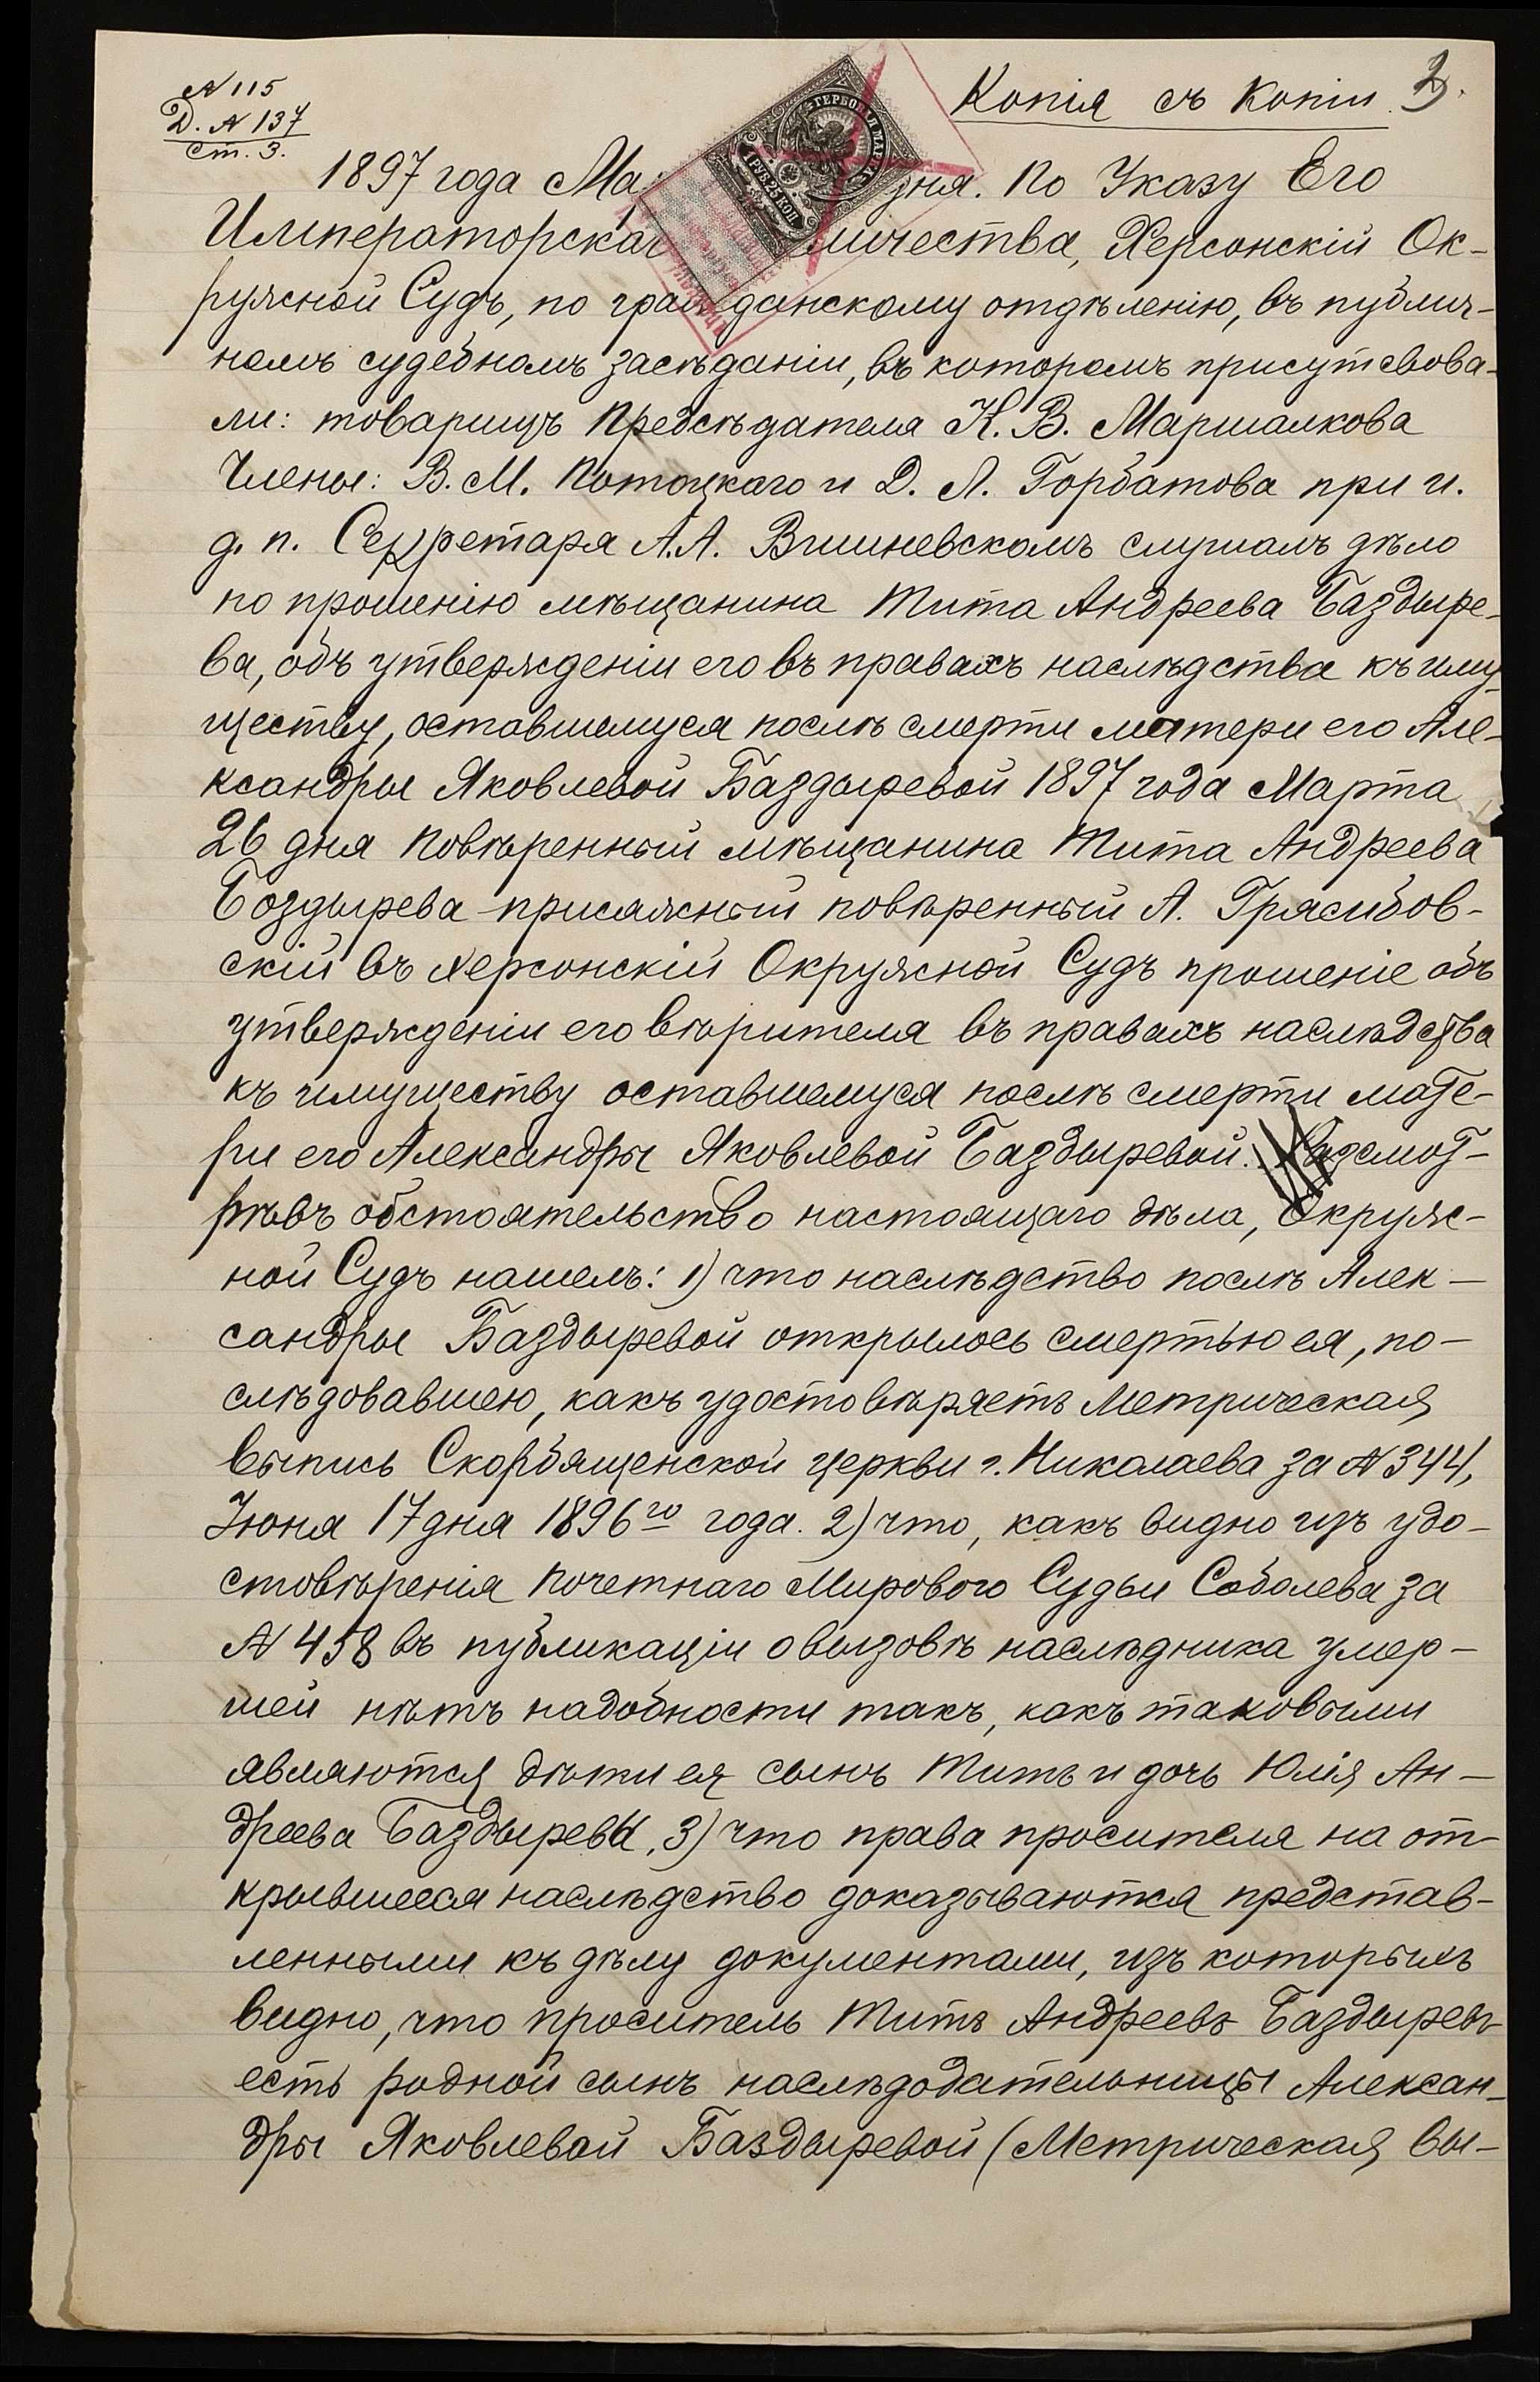 N 115
Д. N 137
ст. 3.
Копія съ Копіи
2.
ГЕРБОВАЯ МАРКА
1 РУБ. 25 КОП.
1897 года Ма дня. По Указу Его
Императорска личества, Херсонскій Ок-
ружной Судъ, по гражданскому отдѣленію, въ публич-
номъ судебномъ засѣданіи, въ которомъ присутсвова-
ли: товарищъ Предсѣдателя К. В. Маршалкова
Члены: В. М. Потоцкаго и Д. Л. Горбатова при и.
д. п. Секретаря А. А. Вишневскомъ слушалъ дѣло
по прошенію мѣщанина Тита Андреева Баздыре-
ва, объ утвержденіи его въ правахъ наслѣдства къ иму-
ществу, оставшемуся послѣ смерти матери его Але-
ксандры Яковлевой Баздыревой 1897 года Марта
26 дня повѣренный мѣщанина Тита Андреева
Боздырева присяжный повѣренный А. Грясибов-
скій въ Херсонскій Окружной Судъ прошеніе объ
утвержденіи его вѣрителя въ правахъ наслѣдства
къ имуществу оставшемуся послѣ смерти мате-
ри его Александры Яковлевой Баздыревой. Разсмот-
рѣвъ обстоятельство настоящаго дѣла, Окруж-
ной Судъ нашелъ: 1) что наслѣдство послѣ Алек-
сандры Баздыревой открылось смертью ея, по-
слѣдовавшею, какъ удостовѣряетъ Метрическая
выпись Скорбященской церкви г. Николаева за N 344,
Іюня 17 дня 1896го года. 2) что, какъ видно изъ удо-
стовѣренія почетнаго Мирового Судьи Соболева за
N 458 въ публикаціи о вызовѣ наслѣдника умер-
шей нѣтъ надобности такъ, какъ таковыми
являются дѣти ея сынъ Титъ и дочь Юлія Ан-
дреева Баздыревы, 3) что права просителя на от-
крывшееся наслѣдство доказываются представ-
ленными къ дѣлу документами, изъ которыхъ
видно, что проситель Титъ Андреевъ Баздыревъ
есть родной сынъ наслѣдодательницы Алексан-
дры Яковлевой Баздыревой (Метрическая вы-